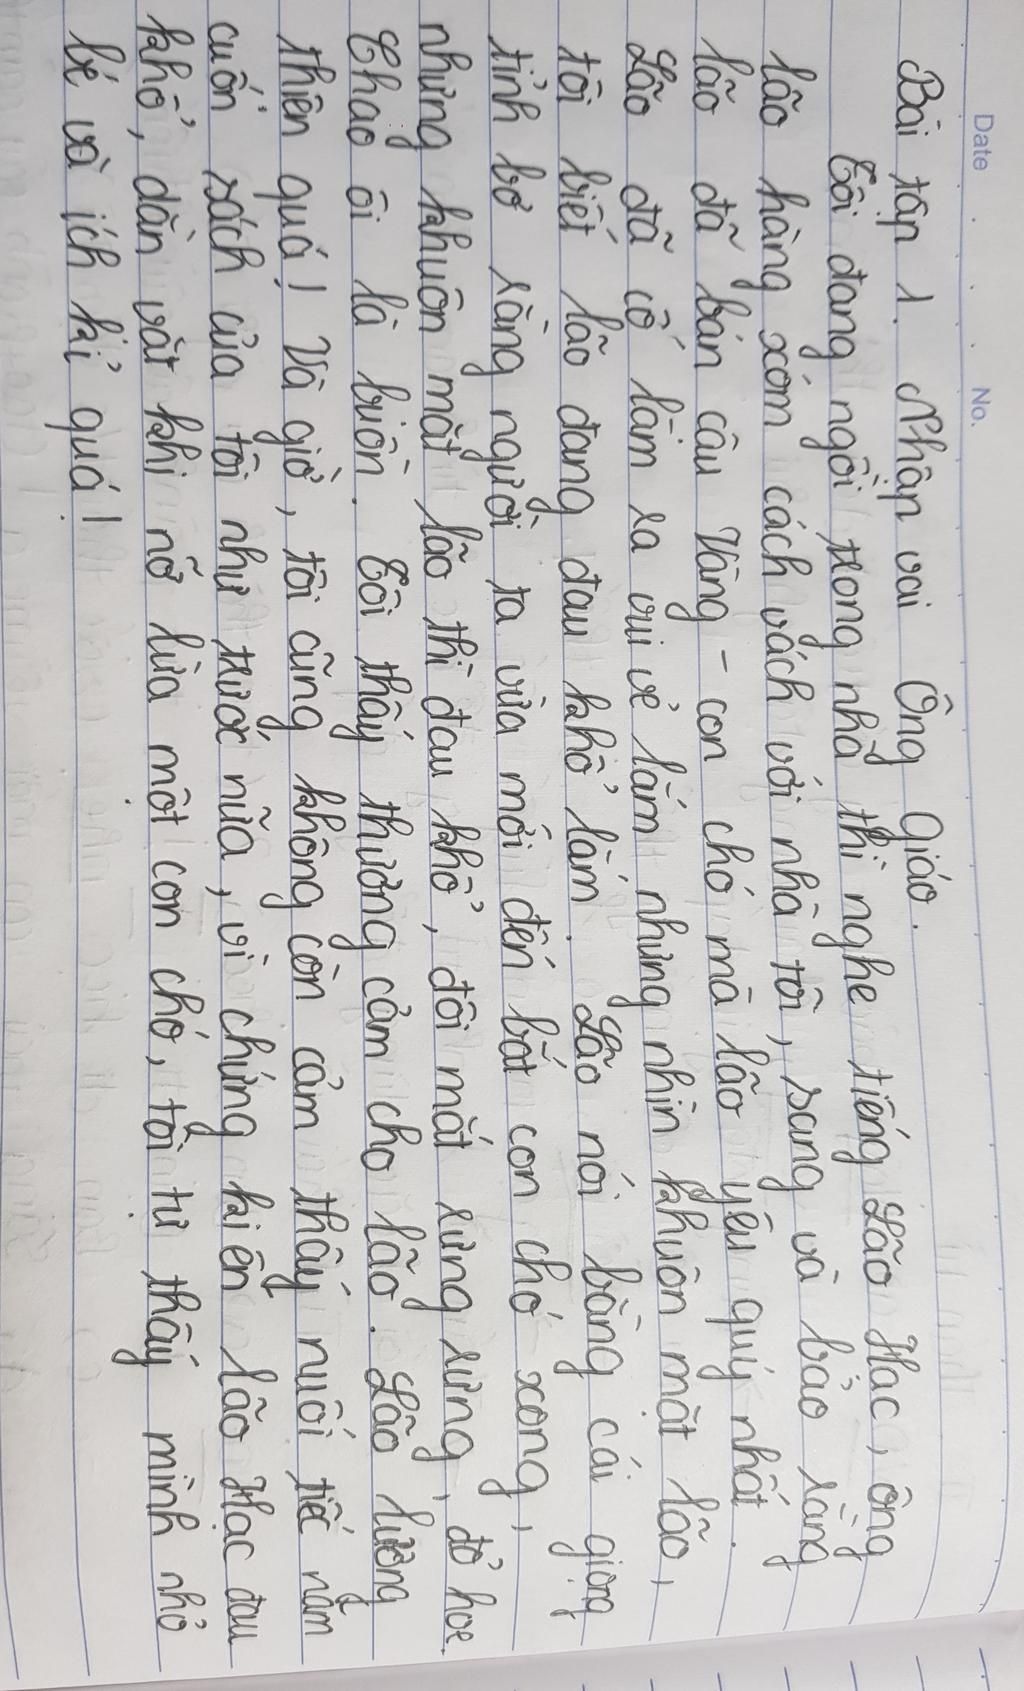 Date . . . . No.
Bài tập 1. Nhập vai Ông giáo.
Tôi đang ngồi trong nhà thì nghe tiếng Lão Hạc, ông
lão hàng xóm cách vách với nhà tôi, sang và bảo rằng
lão đã bán cậu Vàng - con chó mà lão yêu quý nhất.
Lão đã cố làm ra vui vẻ lắm nhưng nhìn khuôn mặt lão,
tôi biết lão đang đau khổ lắm. Lão nói bằng cái giọng
tỉnh bơ rằng người ta vừa mới đến bắt con chó xong,
nhưng khuôn mặt lão thì đau khổ, đôi mắt rưng rưng, đỏ hoe.
Chao ôi là buồn. Tôi thấy thương cảm cho lão. Lão lương
thiện quá! Và giờ, tôi cũng không còn cảm thấy nuối tiếc năm
cuốn sách của tôi như trước nữa, vì chứng kiến lão Hạc đau
khổ, dằn vặt khi nỡ lừa một con chó, tôi tự thấy mình nhỏ
bé và ích kỉ quá!